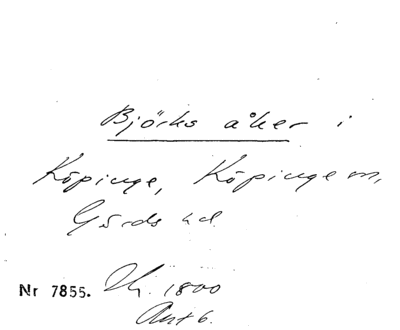 Björks åker i
Köpinge, Köpinge sn,
Gärds hd.
Nr 7855. 1800